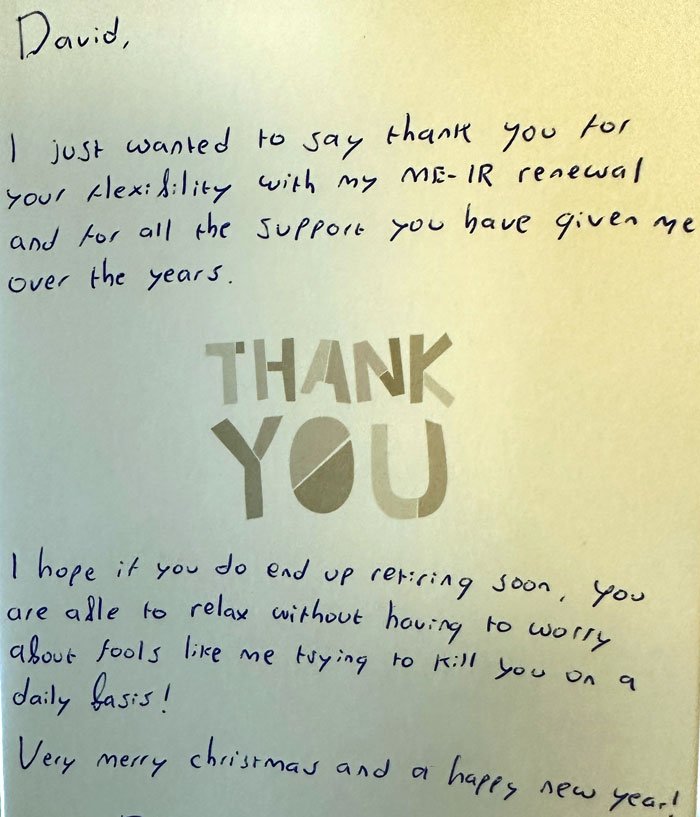 David,
I just wanted to say thank you for
your flexibility with my ME-IR renewal
and for all the support you have given me
over the years.
THANK
YOU
I hope if you do end up retiring soon, you
are able to relax without having to worry
about fools like me trying to kill you on a
daily basis!
Very merry christmas and a happy new year!